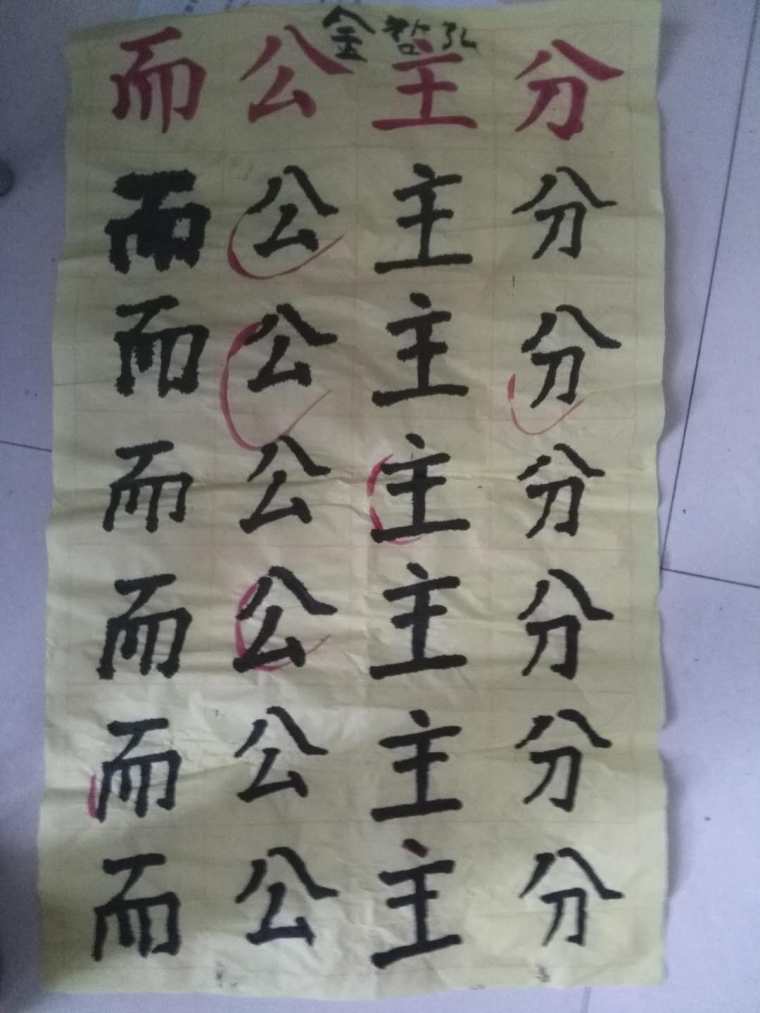 金哲弘
而公主分
而公主分
而公主分
而公主分
而公主分
而公主分
而公主分